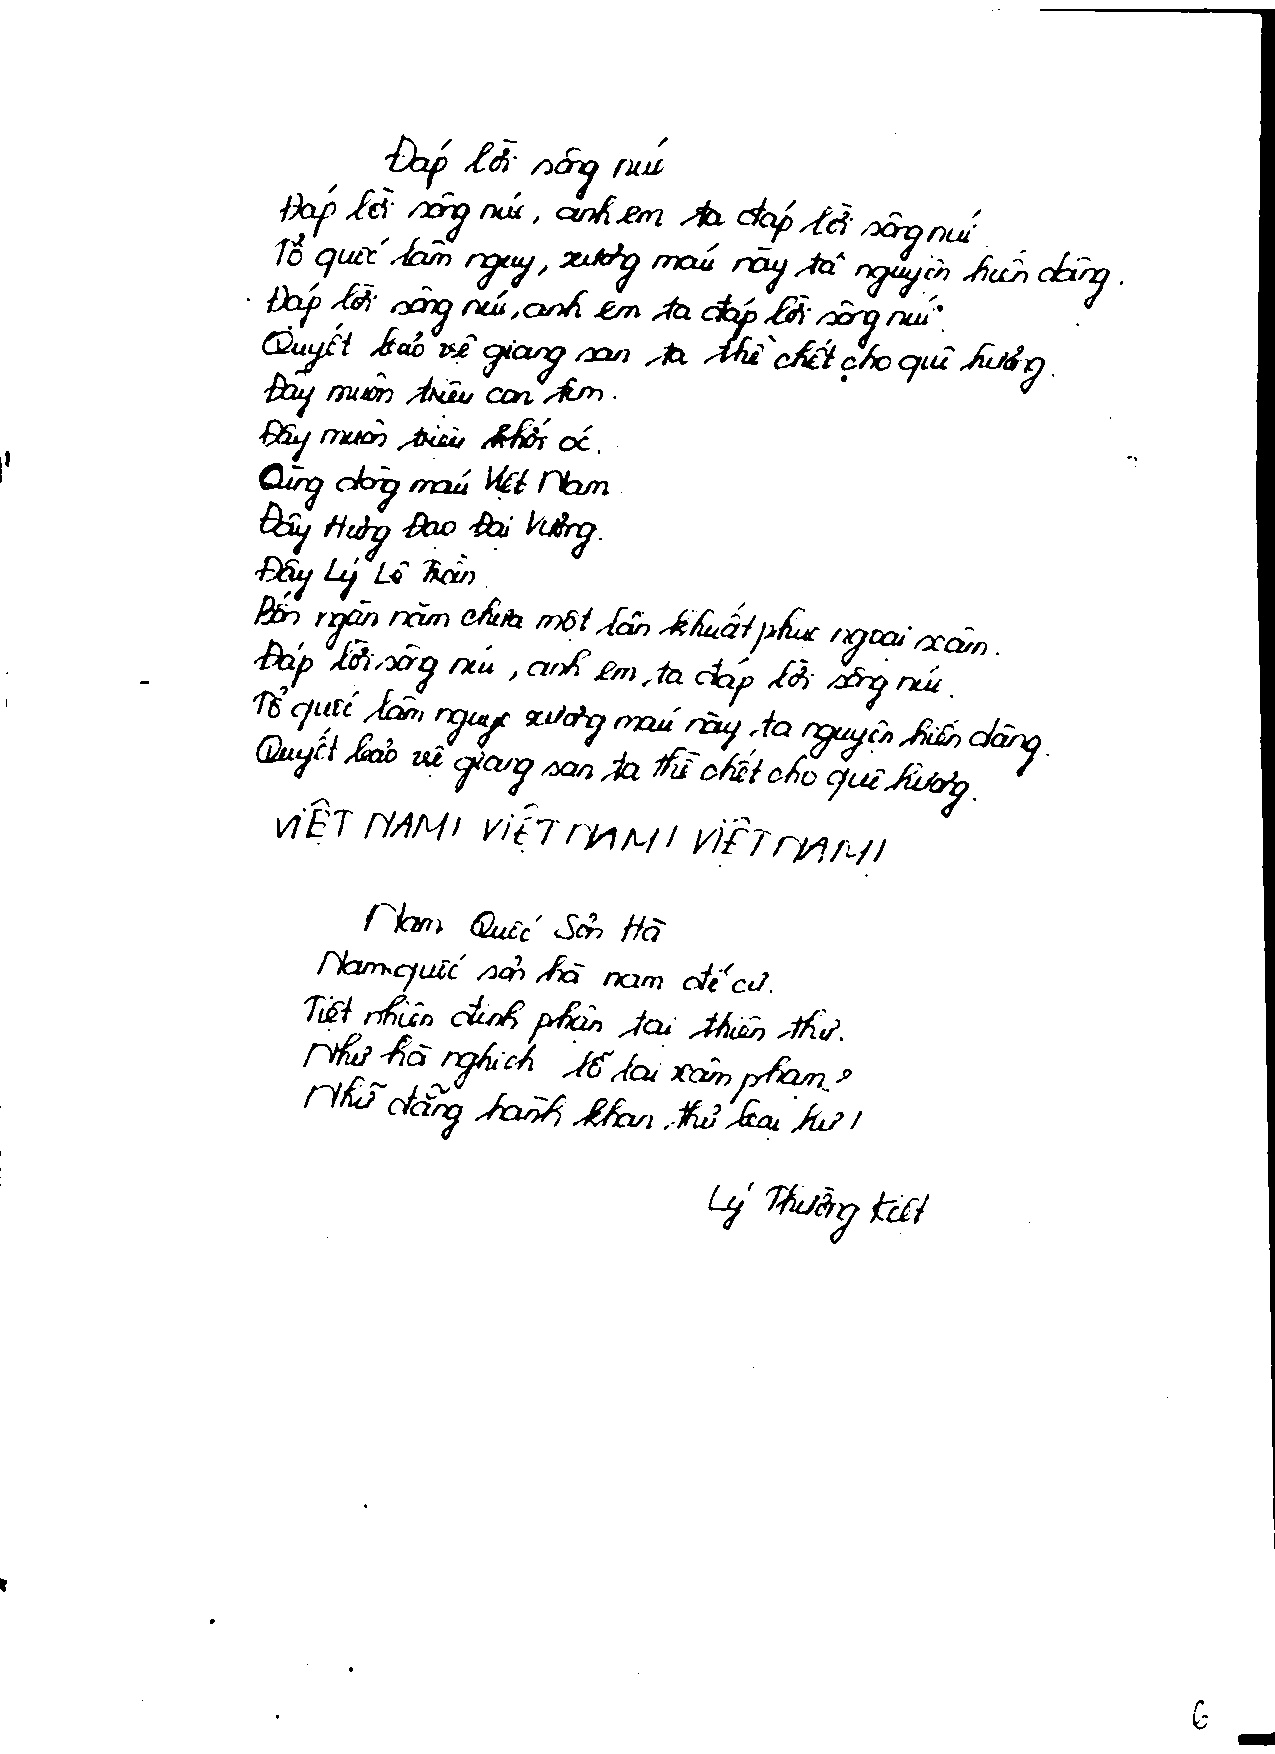 Đáp lời sông núi
Đáp lời sông núi, anh em ta đáp lời sông núi
Tổ quốc lâm nguy, xương máu này ta nguyện hiến dâng.
Đáp lời sông núi, anh em ta đáp lời sông núi.
Quyết bảo vệ giang san ta thề chết cho quê hương.
Đây muôn triệu con tim.
Đây muôn triệu khối óc.
Cùng dòng máu Việt Nam
Đây Hưng Đạo Đại Vương.
Đây Lý Lê Trần
Bốn ngàn năm chưa một lần khuất phục ngoại xâm.
Đáp lời sông núi, anh em ta đáp lời sông núi.
Tổ quốc lâm nguy xương máu này, ta nguyện hiến dâng.
Quyết bảo vệ giang san ta thề chết cho quê hương.
VIỆT NAM! VIỆT NAM! VIỆT NAM!
Nam Quốc Sơn Hà
Nam quốc sơn hà nam đế cư.
Tiệt nhiên định phận tại thiên thư.
Như hà nghịch lỗ lai xâm phạm?
Nhữ đẳng hành khan thủ bại hư!
Lý Thường Kiệt
6